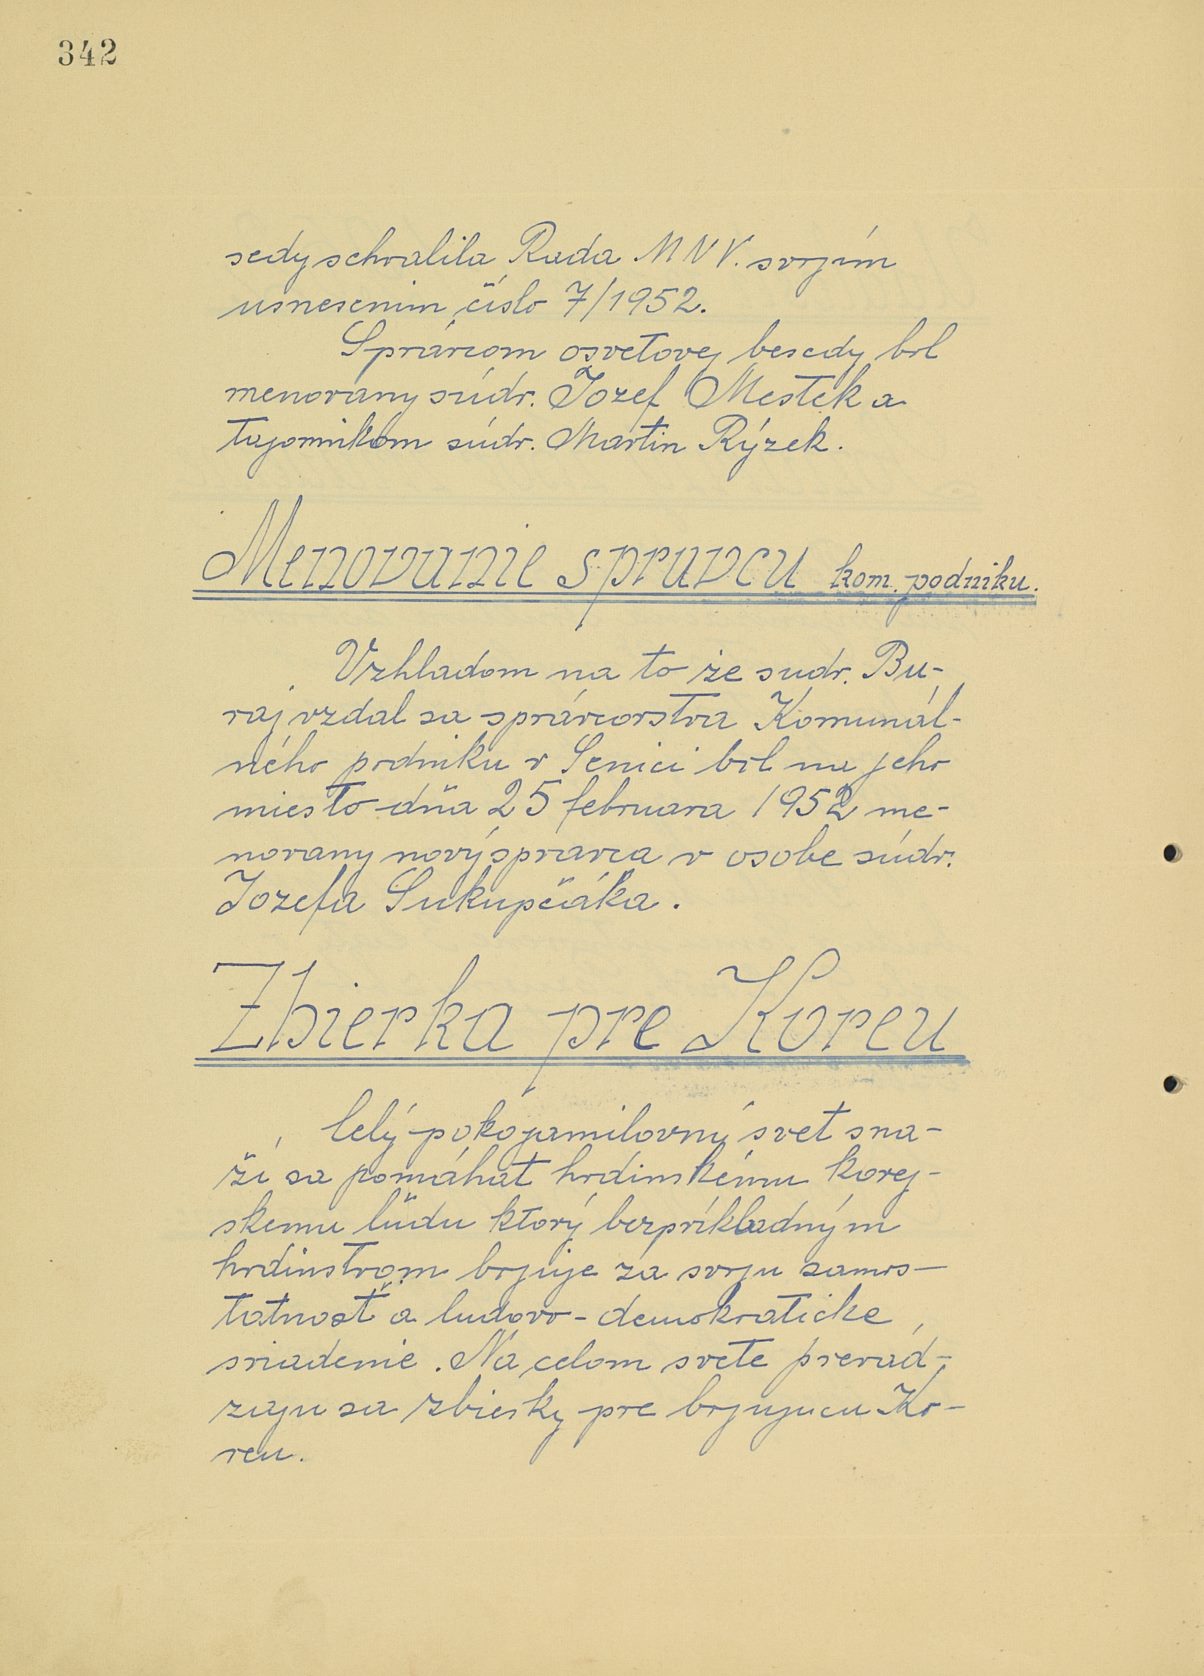 342
sedy schvalila Rada MNV. svojím
usnesenim číslo 7/1952.
Správcom osvetovej besedy bol
menovany súdr. Jozef Mestek a
tajomnikom súdr. Martin Rýzek.
Menovanie spravcu kom. podniku.
Vzhladom na to že sudr. Bu-
raj vzdal sa správcovstva Komunál-
ného podniku v Senici bol na jeho
miesto dňa 25 februara 1952 me-
novany nový spravca v osobe súdr.
Jozefa Sukupčáka.
Zbierka pre Koreu
Celý pokojamilovný svet sna-
ží sa pomáhat hrdinskému korej-
skemu ľudu ktorý bezpríkladným
hrdinstvom bojuje za svoju samos-
tatnosť a ludovo-demokraticke
sriadenie. Na celom svete prevád-
zaju sa zbierky pre bojujucu Ko-
reu.